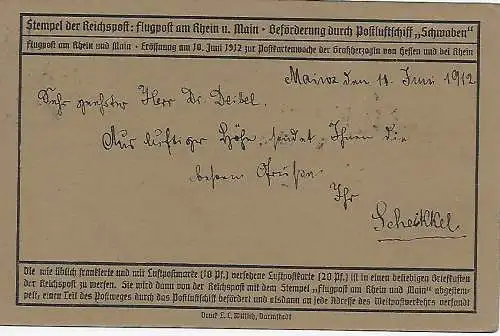 Stempel der Reichspost: Flugpost am Rhein u. Main · Beförderung durch Postluftschiff „Schwaben“
Flugpost am Rhein und Main · Eröffnung am 10. Juni 1912 zur Postkartenwoche der Großherzogin von Hessen und bei Rhein
Mainz den 11. Juni 1912
Sehr geehrter Herr Dr. Deibel.
Aus luftiger Höhe sendet Ihnen die
besten Grüße
Ihr
Scheikkel
Die wie üblich frankierte und mit Luftpostmarke (10 Pf.) versehene Luftpostkarte (20 Pf.) ist in einen beliebigen Briefkasten
der Reichspost zu werfen. Sie wird dann von der Reichspost mit dem Stempel „Flugpost am Rhein und Main“ abgestem-
pelt, einen Teil des Postweges durch das Postluftschiff befördert und alsdann an jede Adresse des Weltpostverkehrs versandt
Druck L. C. Wittich, Darmstadt